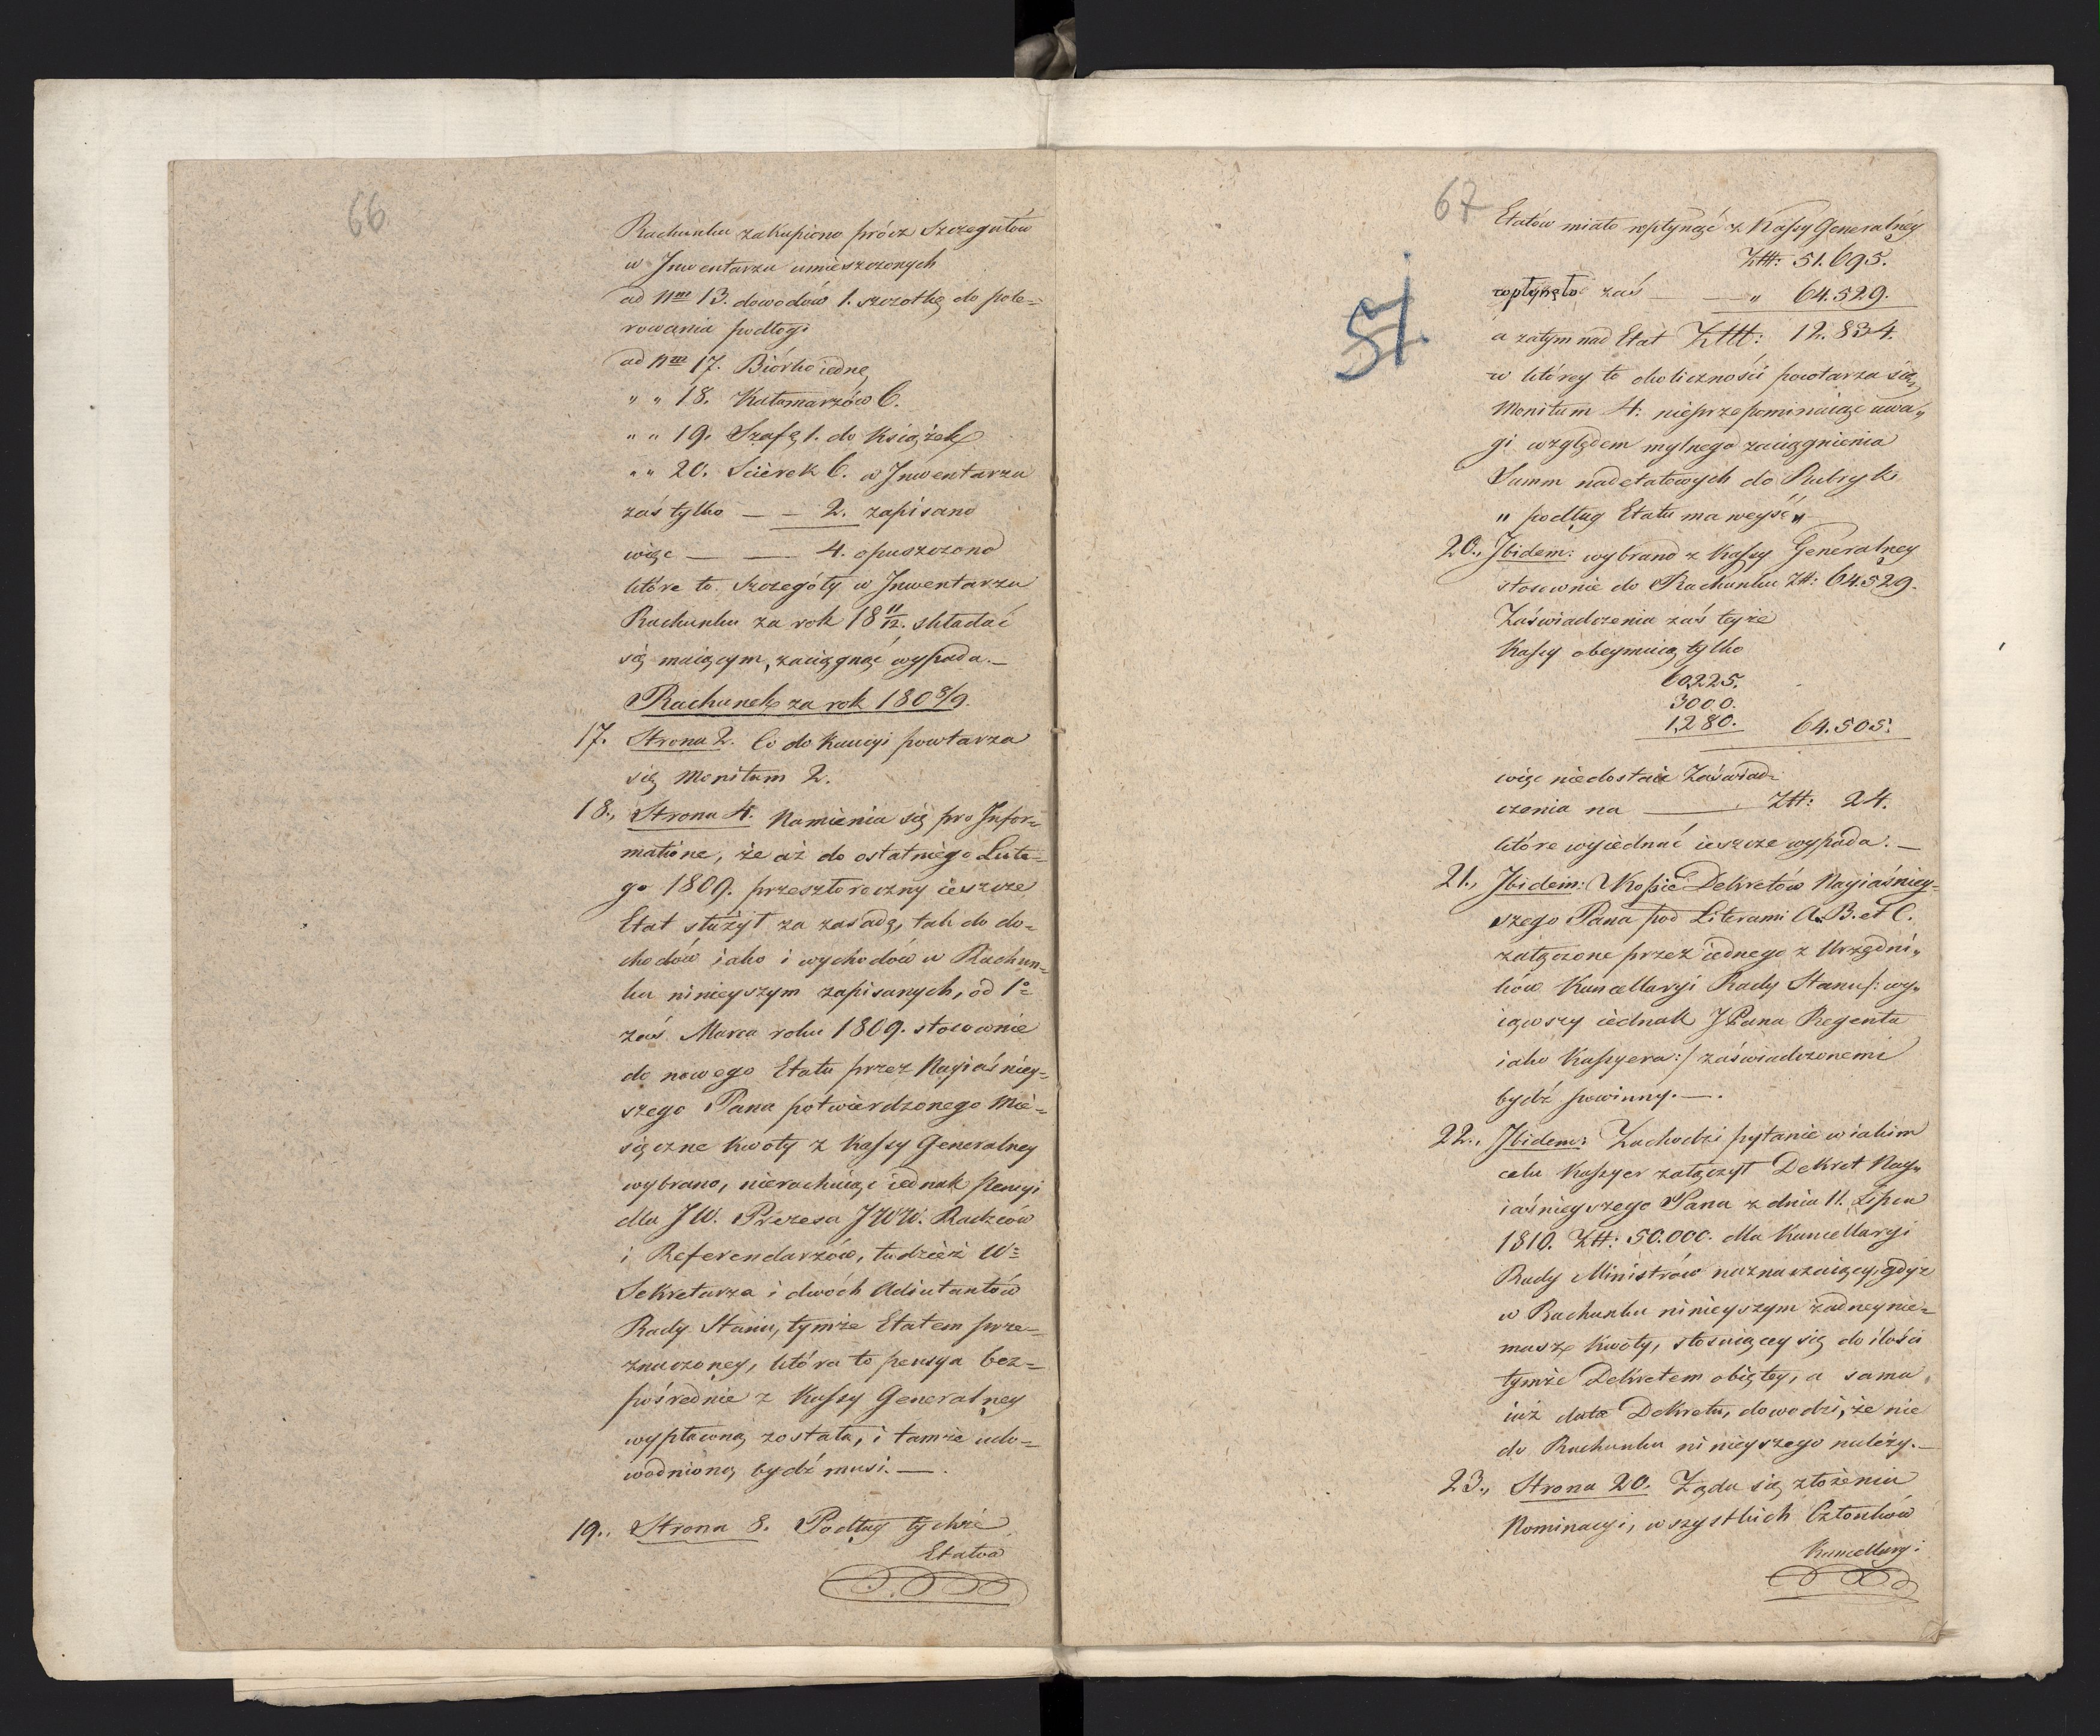 66
Rachunku zakupiono prócz Szczegułów
w Inwentarzu umieszczonych
ad Nm 13. dowodów 1. szczotkę do pole=
rowania podłogi
ad Nm 17. Biórko iedne
" " 18. Kałamarzów 6.
" " 19. Szafę 1. do Książek
" " 20. Ścierek 6. w Inwentarzu
zaś tylko — — 2. zapisano
więc — — 4. opuszczono
które to Szczegóły w Inwentarzu
Rachunku za rok 18 11/12. składać
się maiącym, zaciągnąć wypada. —
Rachunek za rok 1808/9.
17. Strona 2. Co do Kaucyi powtarza
się Monitum 2.
18., Strona 4. Namienia się pro Infor=
matione, że aż do ostatniego Lute=
go 1809. przeszłoroczny ieszcze
Etat służył za zasadę, tak do do=
chodów iako i wychodów w Rachun=
ku ninieyszym zapisanych, od 1o
zaś Marca roku 1809. stosownie
do nowego Etatu przez Nayiaśniey=
szego Pana potwierdzonego Mie=
sięczne Kwoty z Kassy Generalney
wybrano, nierachuiąc iednak Pensyi
dla JW. Prezesa JWW. Radzców
i Referendarzów, tudzież W=
Sekretarza i dwóch Adiutantów
Rady Stanu, tymże Etatem prze=
znaczoney, która to pensya bez=
pośrednie z Kassy Generalney
wypłaconą została, i tamże udo=
wodnioną bydź musi. —
19., Strona 8. Podług tychże
Etatów
67
51.
Etatów miało wpłynąć z Kassy Generalnéy
Złtt: 51.695.
wpłynęło zaś — — " 64.529.
a zatym nad Etat Złtt: 12.834.
w którey to okoliczności powtarza się
Monitum 4: nieprzepominaiąc uwa"
gi względem mylnego zaciągnienia
Summ nadetatowych do Rubryk
" podług Etatu ma weyść "
20., Ibidem: wybrano z Kassy Generalney
stosownie do Rachunku Złt: 64.529.
Zaświadczenia zaś teyże
Kassy obeymuią tylko
60,225.
3000.
1,280. 64.505.
więc niedostaie Zaświad=
czenia na — Złt: 24.
które wyiednać ieszcze wypada. —
21., Ibidem: Kopie Dekretów Nayiaśniey=
szego Pana pod Literami A. B. et C.
załączone przez iednego z Urzędni"
ków Kancellaryi Rady Stanu /: wy"
iąwszy iednak JPana Regenta
iako Kassyera :/ zaświadczonemi
bydź powinny. —.
22., Ibidem: Zachodzi pytanie w iakim
celu Kassyer załączył Dekret Nay"
iaśnieyszego Pana z dnia 11. Lipca
1810. Złt: 50.000. dla Kancellaryi
Rady Ministrów naznaczaiący, gdyż
w Rachunku ninieyszym żadney nie=
masz Kwoty, stosuiącey się do ilości
tymże Dekretem obiętey, a sama
iuż data Dekretu, dowodzi, że nie
do Rachunku ninieyszego należy. —
23., Strona 20. Żąda się złożenia
Nominacyi, wszystkich Członków
Kancellaryi